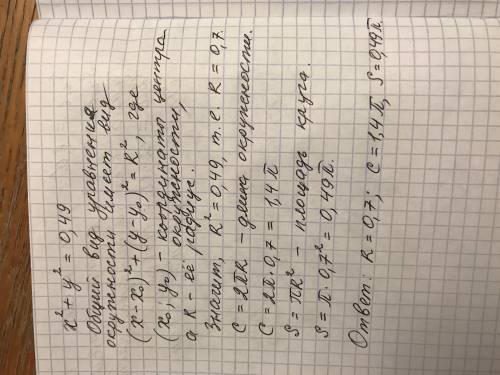 x² + y² = 0,49
Общий вид уравнения
окружности имеет вид
(x-x₀)² + (y-y₀)² = R², где
(x₀; y₀) - координаты центра
окружности,
а R - её радиус.
Значит, R² = 0,49, т.е. R = 0,7.
C = 2πR - длина окружности.
C = 2π·0,7 = 1,4π
S = πR² - площадь круга.
S = π·0,7² = 0,49π.
Ответ: R = 0,7; C = 1,4π, S = 0,49π